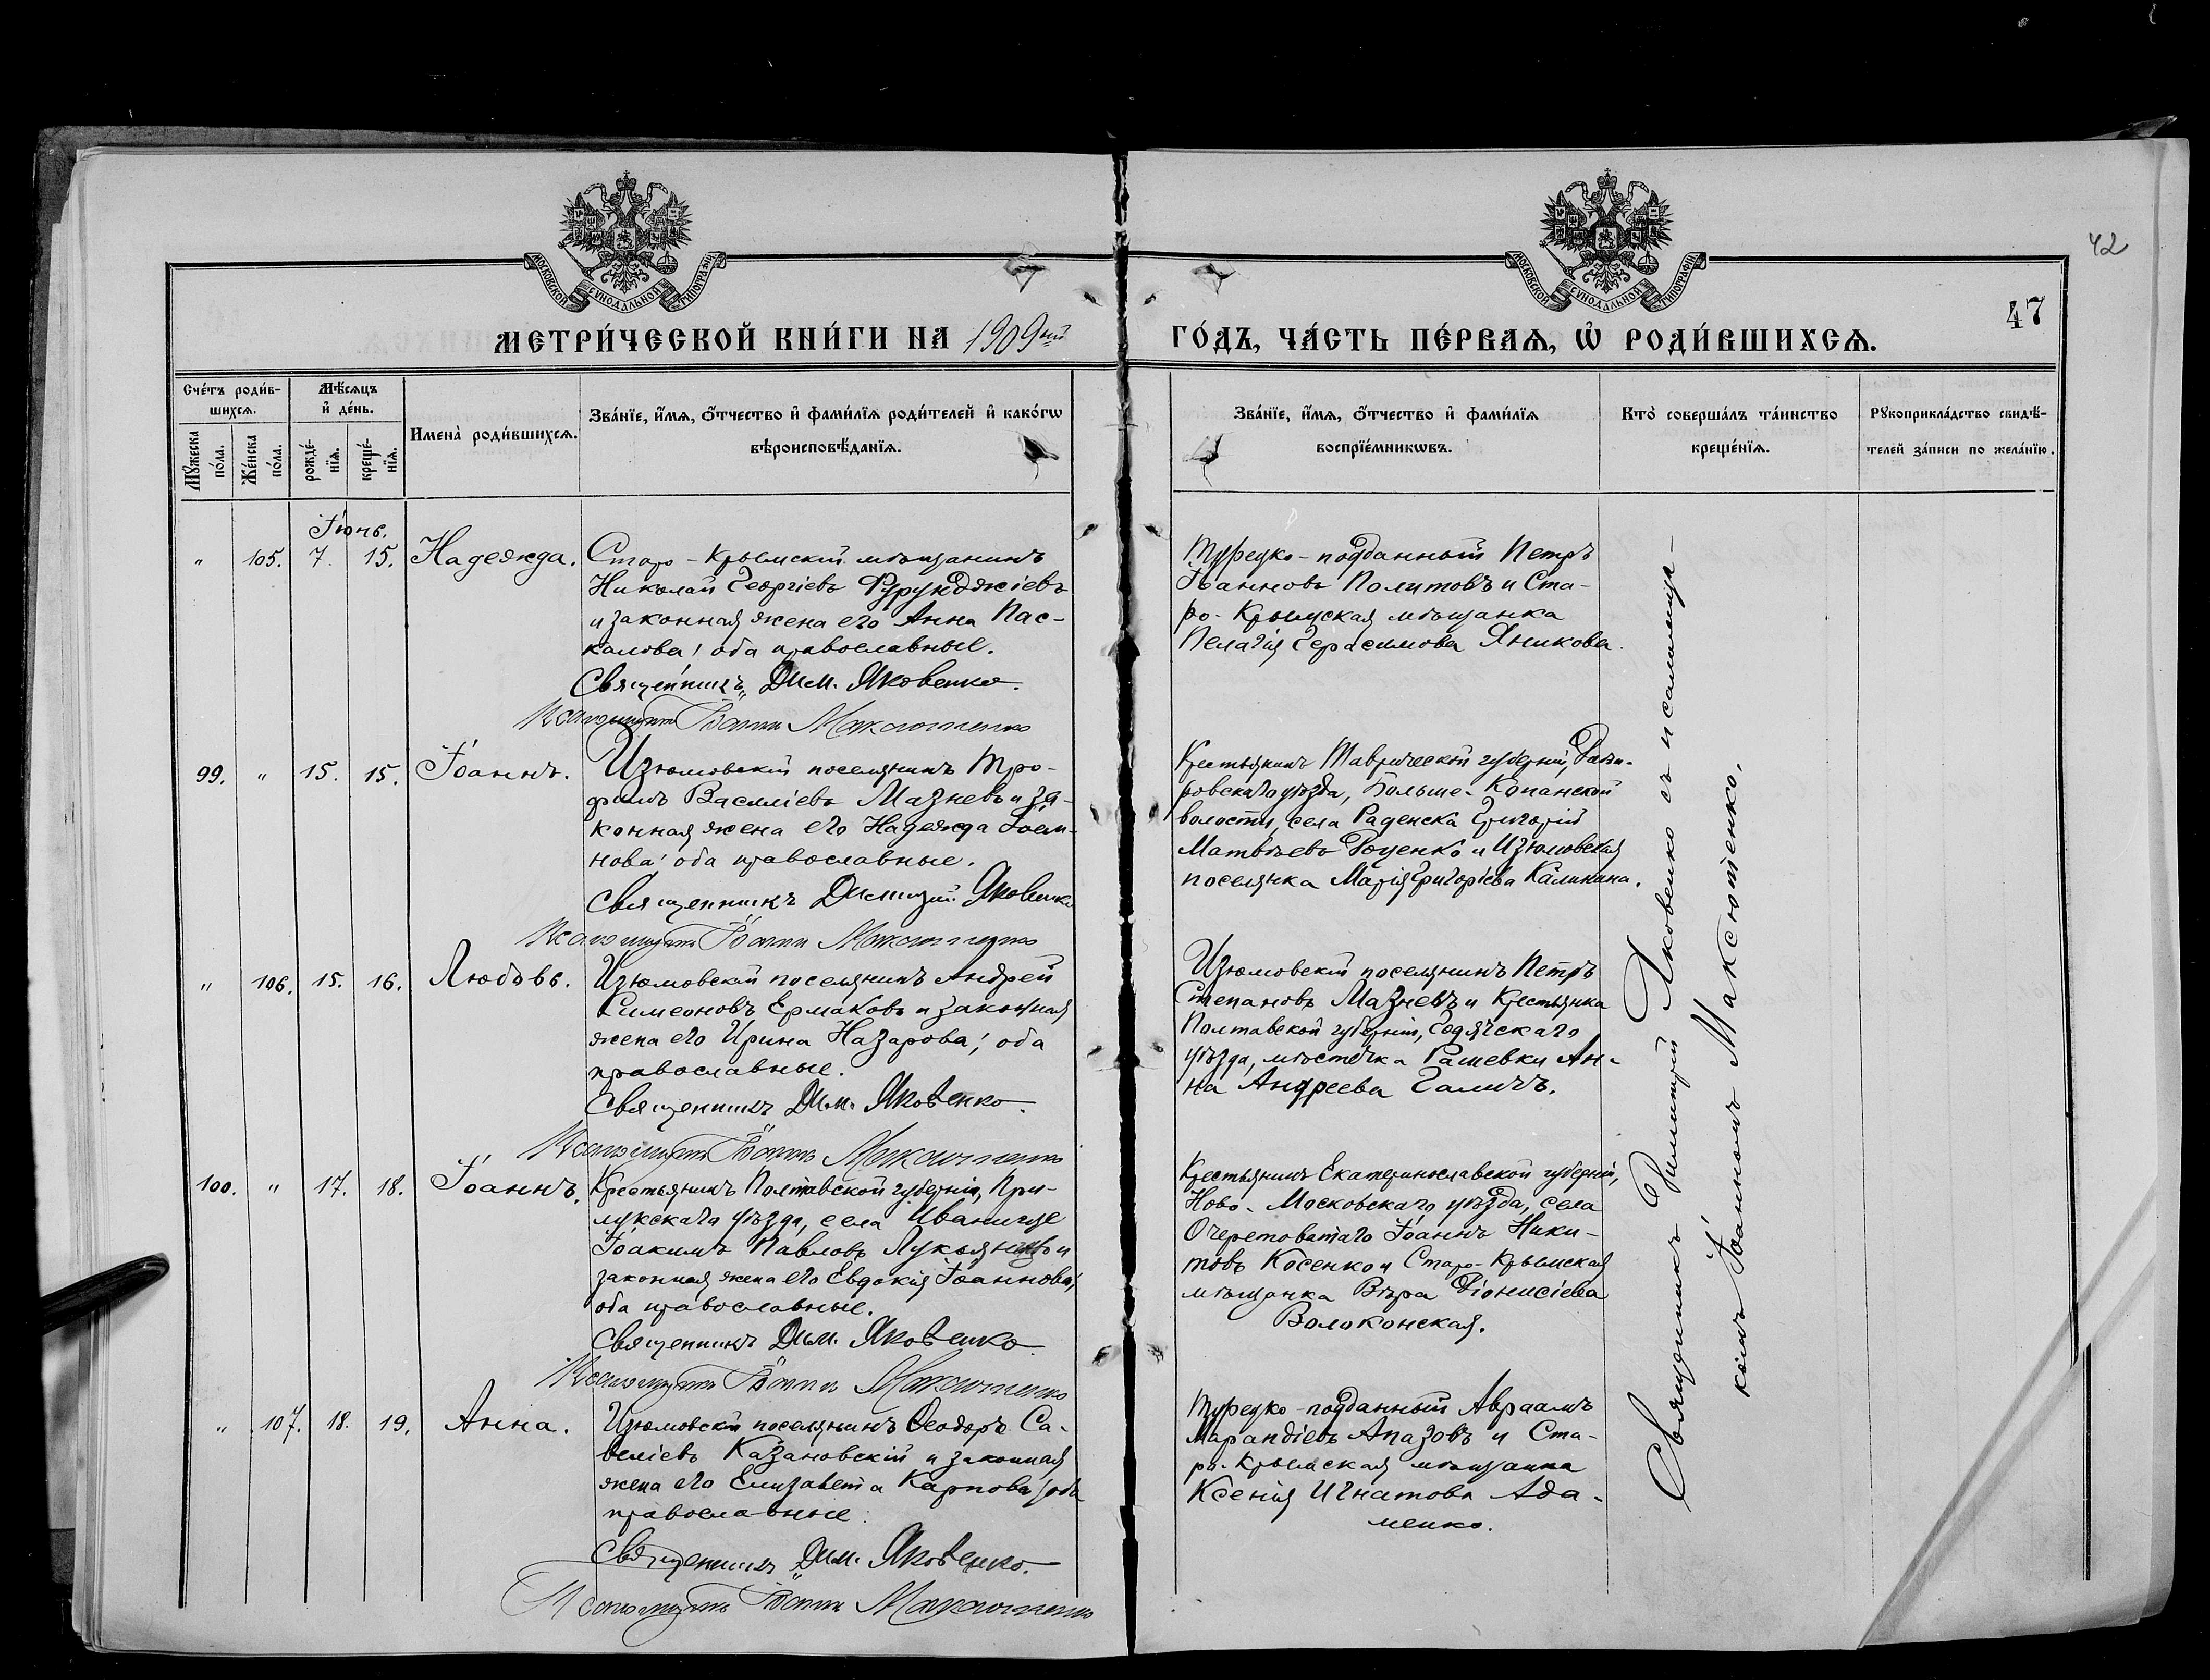 МОСКОВСКОЙ СѴНОДАЛЬНОЙ ТИПОГРАФІИ
МОСКОВСКОЙ СѴНОДАЛЬНОЙ ТИПОГРАФІИ
42
47
МЕТРИ́ЧЕСКОЙ КНИ́ГИ НА 1909ый
ГО́ДЪ, ЧА́СТЬ ПЕ́РВАѦ, Ѡ҆ РОДИ́ВШИХСѦ.
Сче́тъ роди́в-
шихсѧ.
Мѣ́сѧцъ
и҆ де́нь.
Мꙋ́жеска
по́ла.
Же́нска
по́ла.
рожде́-
нїѧ.
креще́-
нїѧ.
Имена̀ роди́вшихсѧ.
Зва́нїе, и҆́мѧ, ѻ҆́тчество и҆ фами́лїѧ роди́телей и҆ како́гѡ
вѣроисповѣ́данїѧ.
Зва́нїе, и҆́мѧ, ѻ҆́тчество и҆ фами́лїѧ
воспрїе́мникѡвъ.
Кто̀ соверша́лъ та́инство
креще́нїѧ.
Рꙋкоприкла́дство свидѣ́-
телей за́писи по жела́нїю.
Іюнь.
" 105. 7. 15. Надежда.
Старо-Крымскій мѣщанинъ
Николай Георгіевъ Фурунджіевъ
и законная жена его Анна Пас-
калова; оба православные.
Священникъ Дим. Яковенко.
Псаломщикъ Іоаннъ Максютенко
Турецко-подданный Петръ
Іоанновъ Политовъ и Ста-
ро-Крымская мѣщанка
Пелагія Герасимова Яникова.
99. " 15. 15. Іоаннъ.
Изюмовскій поселянинъ Тро-
фимъ Василіевъ Мазневъ и за-
конная жена его Надежда Іоан-
нова; оба православные.
Священникъ Димитрій Яковенко
Псаломщикъ Іоаннъ Максютенко
Крестьянинъ Таврической губерніи, Днѣп-
ровскаго уѣзда, Больше-Копанской
волости, села Раденска Григорій
Матвѣевъ Роценко и Изюмовская
поселянка Марія Григоріева Калинина.
" 106. 15. 16. Любовь.
Изюмовскій поселянинъ Андрей
Симеоновъ Ермаковъ и законная
жена его Ирина Назарова; оба
православные.
Священникъ Дим. Яковенко.
Псаломщикъ Іоаннъ Максютенко
Изюмовскій поселянинъ Петръ
Степановъ Мазневъ и Крестьянка
Полтавской губерніи, Гадячскаго
уѣзда, мѣстечка Рашевки Ан-
на Андреева Галичъ.
100. " 17. 18. Іоаннъ.
Крестьянинъ Полтавской губерніи, При-
лукскаго уѣзда, села Иваница
Іоакимъ Павловъ Лукьянецъ и
законная жена его Евдокія Іоаннова;
оба православные.
Священникъ Дим. Яковенко
Псаломщикъ Іоаннъ Максютенко
Крестьянинъ Екатеринославской губерніи,
Ново-Московскаго уѣзда, села
Очеретоватаго Іоаннъ Ники-
товъ Косенко и Старо-Крымская
мѣщанка Вѣра Діонисіева
Волоконская.
" 107. 18. 19. Анна.
Изюмовскій поселянинъ Ѳеодоръ Са-
веліевъ Казановскій и законная
жена его Елизавета Карпова; оба
православные.
Священникъ Дим. Яковенко.
Псаломщикъ Іоаннъ Максютенко
Турецко-подданный Авраамъ
Марандіевъ Апазовъ и Ста-
ро-Крымская мѣщанка
Ксенія Игнатова Ада-
менко.
Священникъ Димитрій Яковенко съ псаломщи-
комъ Іоанномъ Максютенко.